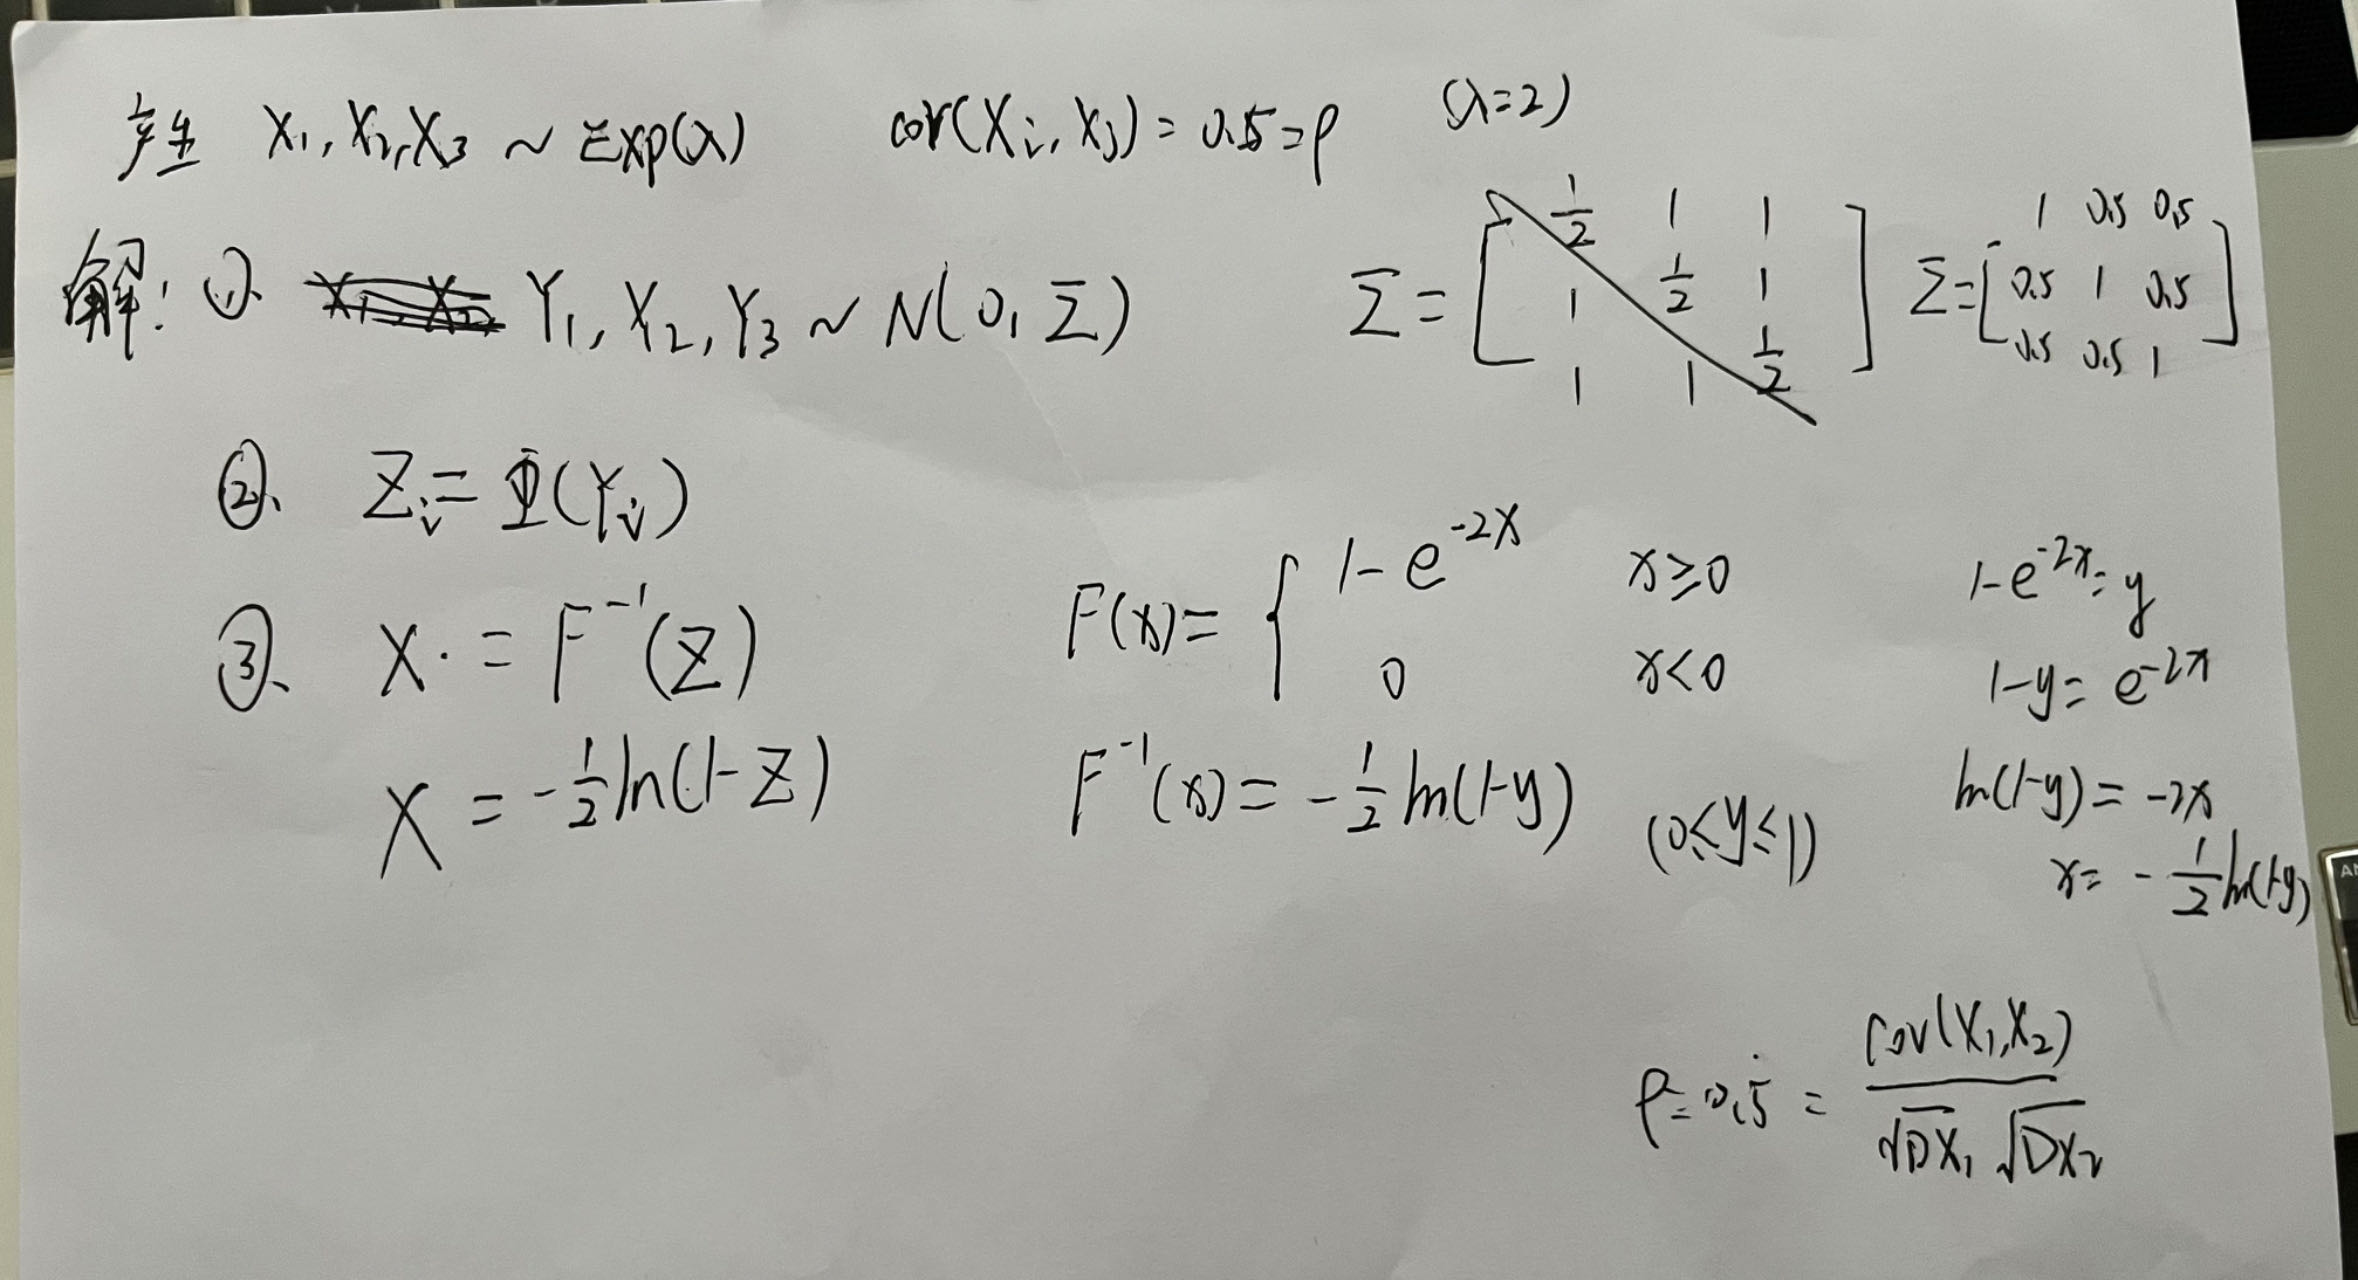 产生 X₁, X₂, X₃ ~ Exp(λ) cor(Xᵢ, Xⱼ) = 0.5 = ρ (λ=2)
解: ①. Y₁, Y₂, Y₃ ~ N(0, Σ) Σ = [1/2 1 1; 1 1/2 1; 1 1 1/2] Σ = [1 0.5 0.5; 0.5 1 0.5; 0.5 0.5 1]
②. Zᵢ = Φ(Yᵢ)
③. X. = F⁻¹(Z) F(x) = { 1-e^{-2x} x≥0
0 x<0
1-e^{-2x} = y
1-y = e^{-2x}
X = -1/2 ln(1-Z) F⁻¹(x) = -1/2 ln(1-y) (0≤y≤1)
ln(1-y) = -2x
x = -1/2 ln(1-y)
ρ = 0.5 = cov(X₁,X₂) / √DX₁ √DX₂